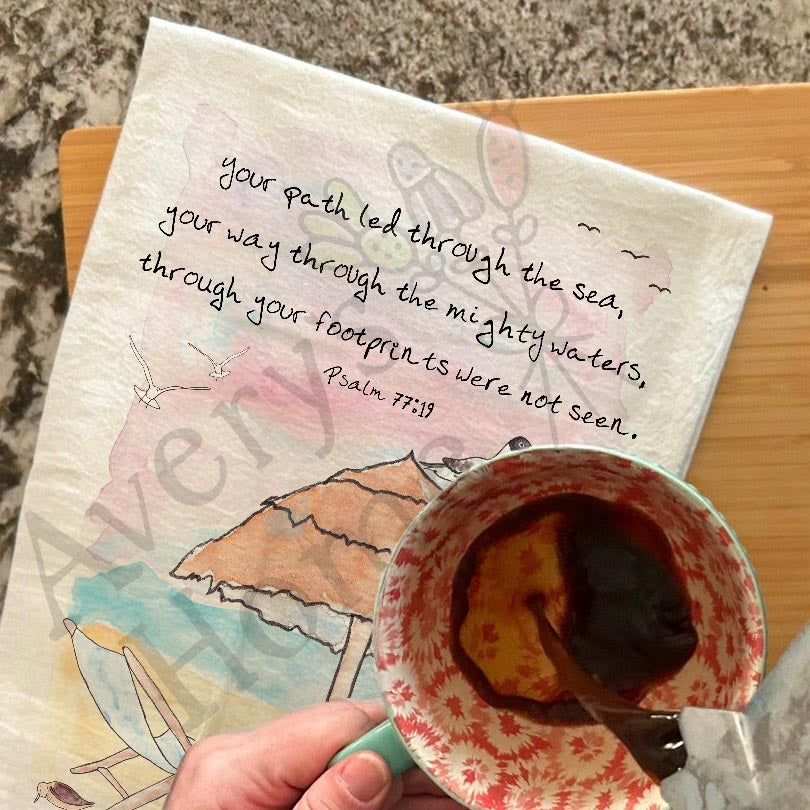 your path led through the sea,
your way through the mighty waters,
through your footprints were not seen.
Psalm 77:19
Avery's
Heros